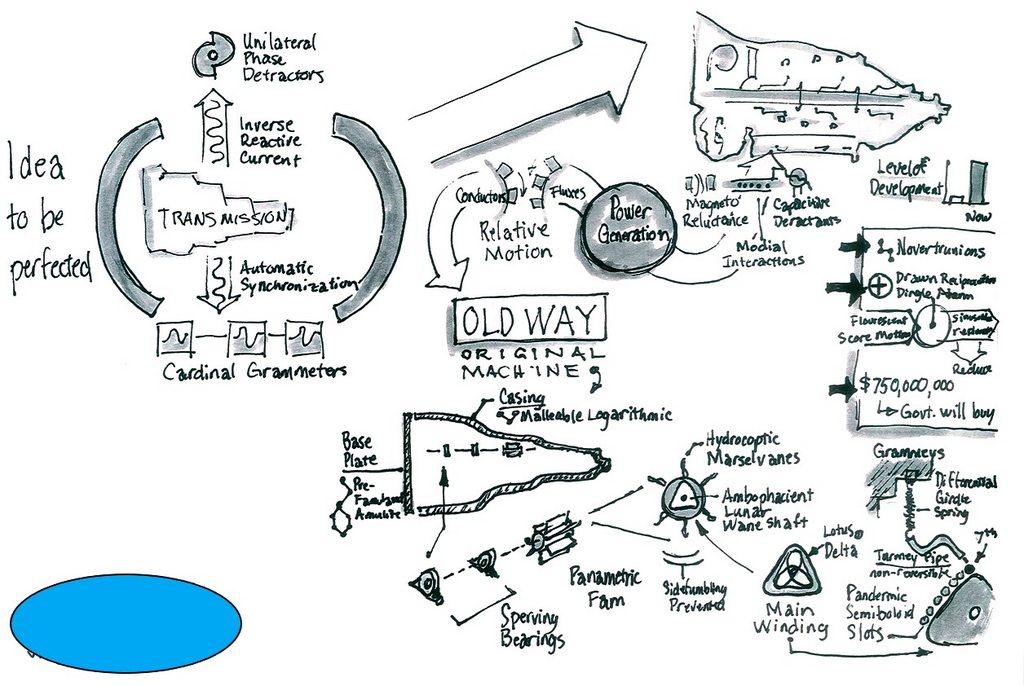 Idea
to be
perfected
Unilateral
Phase
Detractors
Inverse
Reactive
Current
TRANSMISSION
Automatic
Synchronization
Cardinal Grammeters
Conductors
Fluxes
Relative
Motion
Power
Generation
Magneto
Reluctance
Capacitive
Modial
Interactions
Level of
Development
Now
Novertrunions
Drawn
Dingle Arm
Flourescent
Score Motion
Sinusoidal
Reduce
$750,000,000
Govt. will buy
OLD WAY
ORIGINAL
MACHINE
Casing
Malleable Logarithmic
Base
Plate
Pre-
Famulated
Amulite
Hydrocoptic
Marselvanes
Ambaphacient
Lunar
Wane Shaft
Sidefumbling
Prevented
Panametric
Fam
Sperving
Bearings
Lotus O
Delta
Main
Winding
Grammeys
Differential
Girdle
Spring
7th
Tarmey Pipe
non-reversible
Pandermic
Semiboloid
Slots